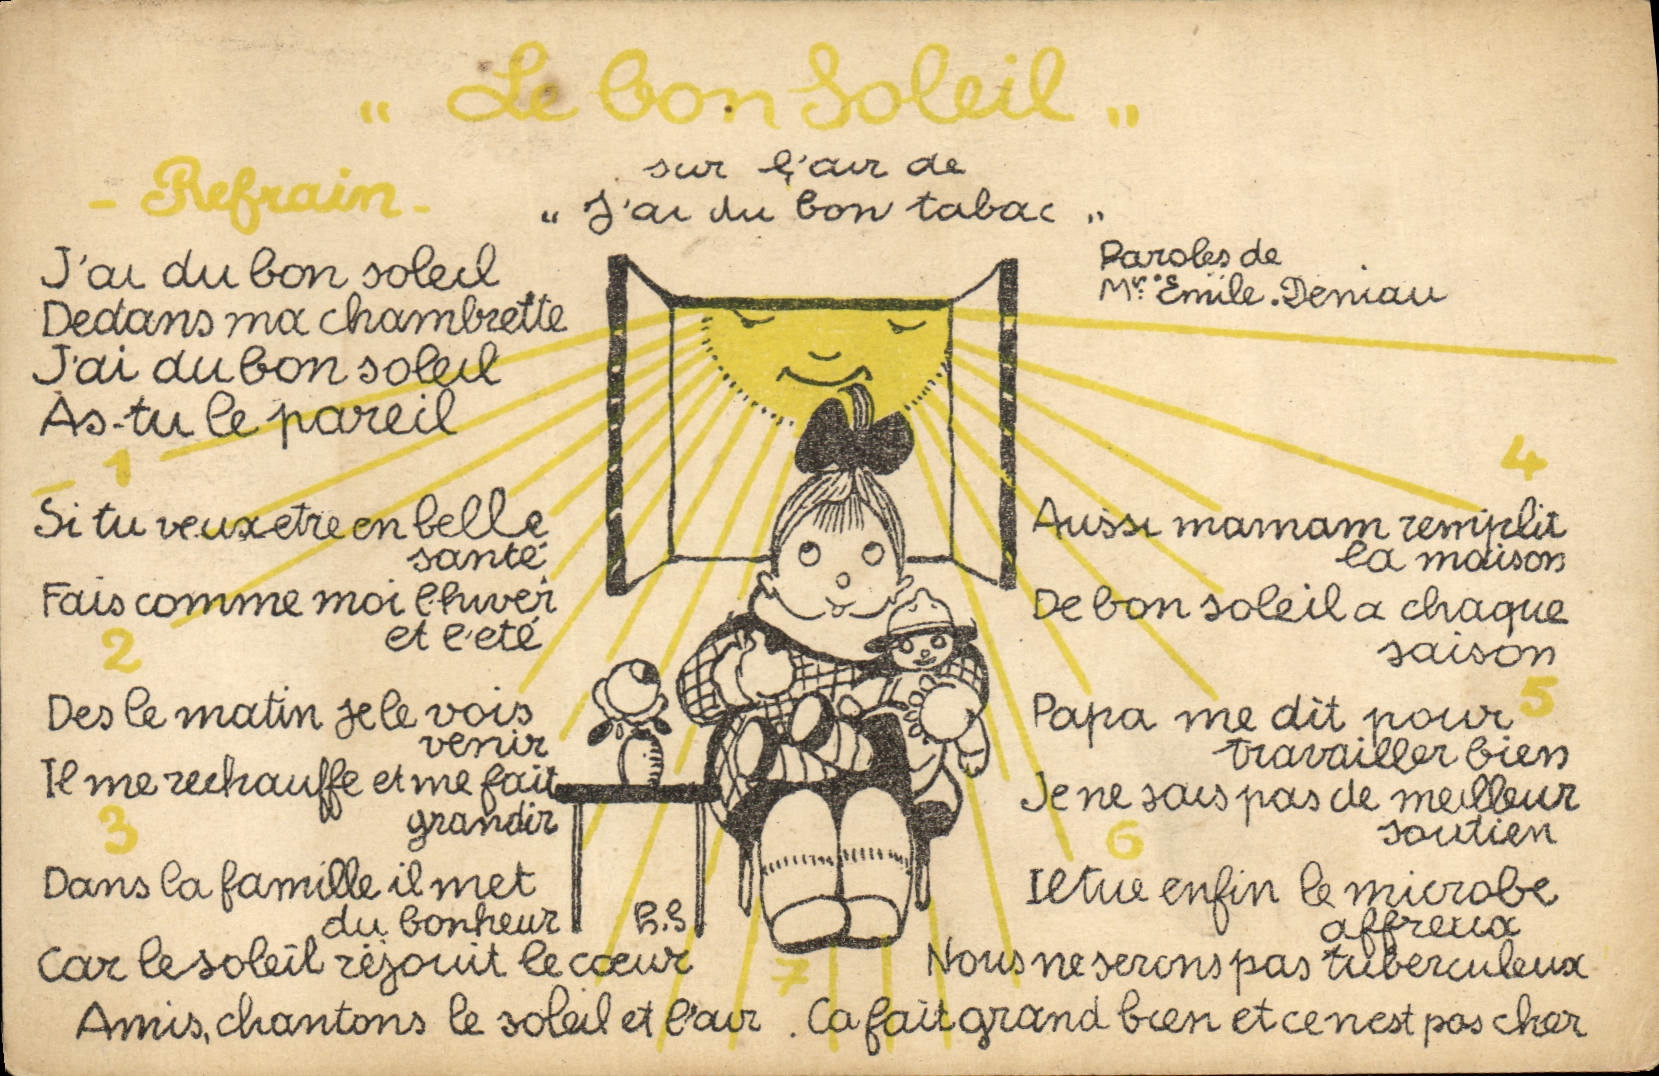 " Le bon Soleil "
sur l'air de
" J'ai du bon tabac "
Paroles de
Mr: Emile. Deniau
- Refrain -
J'ai du bon soleil
Dedans ma chambrette
J'ai du bon soleil
As-tu le pareil
1
Si tu veux etre en belle
santé
Fais comme moi l'hiver
et l'eté
2
Des le matin je le vois
venir
Il me rechauffe et me fait
grandir
3
Dans la famille il met
du bonheur
Car le soleil réjouit le cœur
4
Aussi mamam remplit
la maison
De bon soleil a chaque
saison
5
Papa me dit pour
travailler bien
Je ne sais pas de meilleur
soutien
6
Il tue enfin le microbe
affreux
Nous ne serons pas tuberculeux
7
Amis, chantons le soleil et l'air . Ca fait grand bien et ce n'est pas cher